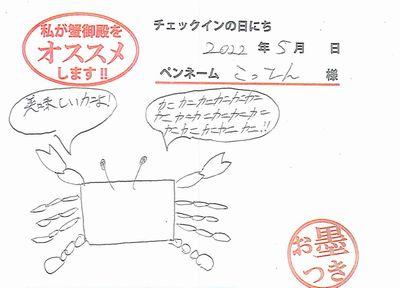 私が蟹御殿を
オススメ
します!!
チェックインの日にち
2022 年 5 月 日
ペンネーム こってん 様
美味しいカニよ!
カニ カニ カニ カニ カニ
カニ カニ カニ カニ カニ
カニ カニ カニ カニ!!
お墨
つき